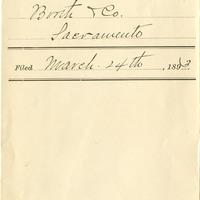 Booth & Co.
Sacramento
Filed March 24th, 1893.